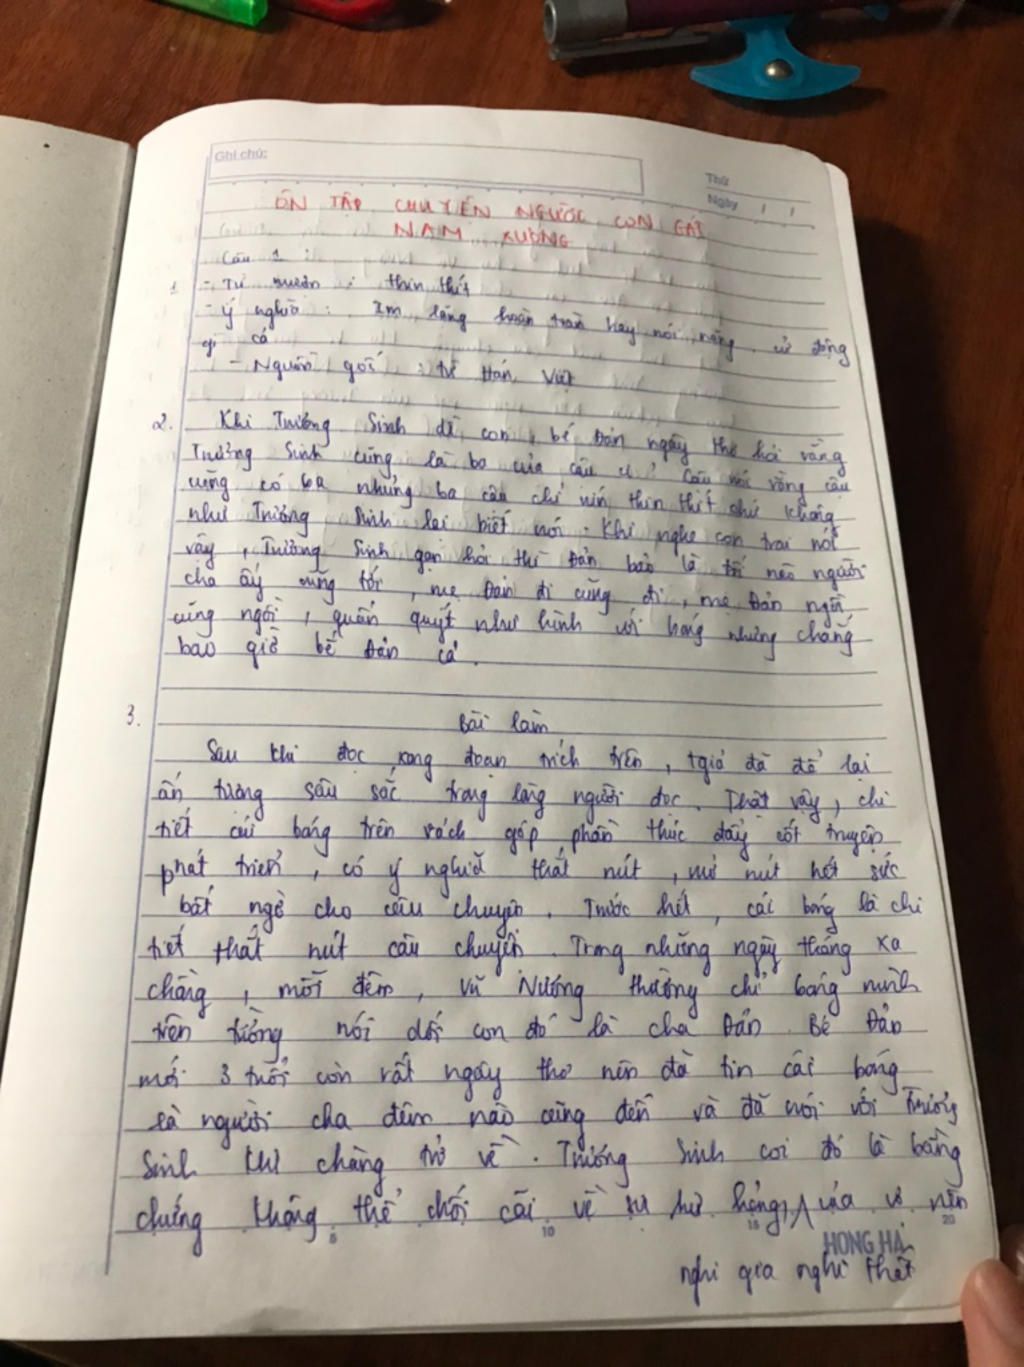 Ghi chú:
Thứ
Ngày / /
ÔN TẬP CHUYỆN NGƯỜI CON GÁI
NAM XƯƠNG
Câu 1 :
1 - Từ mượn : thin thít
- Ý nghĩa : Im lặng hoàn toàn hay nói năng cử động
gì cả
- Nguồn gốc : từ Hán Việt
2. Khi Trương Sinh dỗ con, bé Đản ngây thơ hỏi rằng
Trương Sinh cũng là bố của cậu ư ? Cậu nói rằng cậu
cũng có ba nhưng ba cậu chỉ nín thin thít chứ không
như Trương Sinh lại biết nói. Khi nghe con trai nói
vậy, Trương Sinh gạn hỏi thì Đản bảo là tối nào người
cha ấy cũng tới, mẹ Đản đi cũng đi, mẹ Đản ngồi
cũng ngồi, quấn quýt như hình với bóng nhưng chẳng
bao giờ bế Đản cả.
3. Bài làm
Sau khi đọc xong đoạn trích trên, tgiả đã để lại
ấn tượng sâu sắc trong lòng người đọc. Thật vậy, chi
tiết cái bóng trên vách góp phần thúc đẩy cốt truyện
phát triển, có ý nghĩa thắt nút, mở nút hết sức
bất ngờ cho câu chuyện. Trước hết, cái bóng là chi
tiết thắt nút câu chuyện. Trong những ngày tháng xa
chồng, mỗi đêm, Vũ Nương thường chỉ bóng mình
trên tường nói dối con đó là cha Đản. Bé Đản
mới 3 tuổi còn rất ngây thơ nên đã tin cái bóng
là người cha đêm nào cũng đến và đã nói với Trương
Sinh khi chàng trở về. Trương Sinh coi đó là bằng
chứng không thể chối cãi về sự hư hỏng của vợ nên
5 10 15 20
HONG HA
nghi qua nghi thất